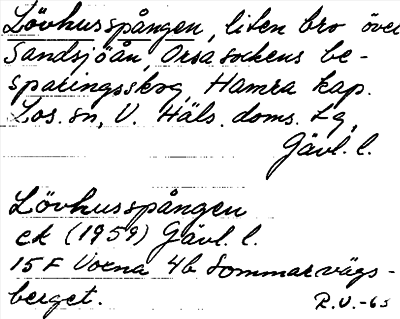 Lövhusspången, liten bro över
Sandsjöån, Orsa sockens be-
sparingsskog, Hamra kap.
Los. sn, V. Häls. doms. Lg,
Gävl. l.
Lövhusspången
ek (1959) Gävl. l.
15F Voxna 4b Sommarvägs-
berget.
R.V.-65